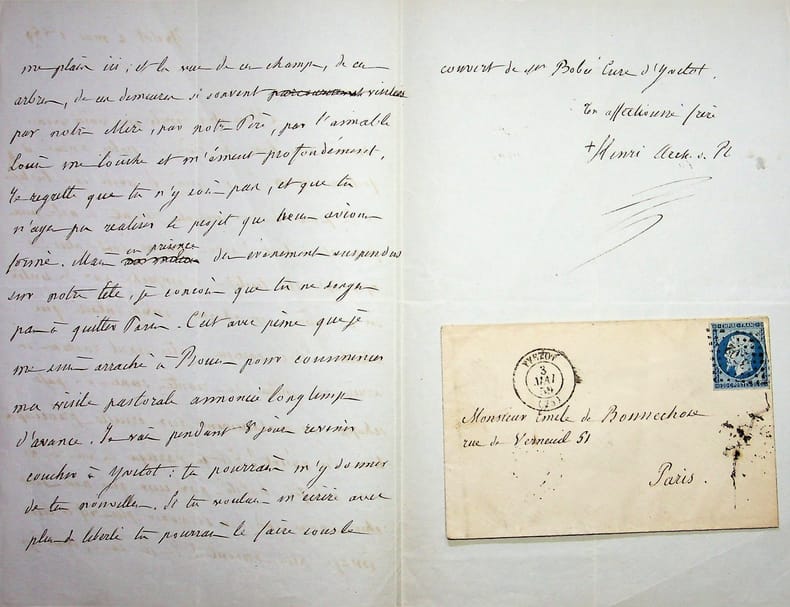 me plain ici ; et la vue de ces champs, de ces
arbres, de ces demeures si souvent visitées
par notre Mère, par notre Père, par l'aimable
Louis me touche et m'émeut profondément.
Je regrette que tu n'y sois pas, et que tu
n'ayes pu realiser le projet que nous avions
formé. Mais en présence des évènements suspendus
sur notre tête, je conçois que tu ne songes
pas à quitter Paris. C'est avec peine que je
me suis arraché à Rouen pour commencer
ma visite pastorale annoncée longtemps
d'avance. Je vais pendant 8 jours revenir
coucher à Yvetot : tu pourrais m'y donner
de tes nouvelles. Si tu voulais m'écrire avec
plus de liberté tu pourrais le faire sous le
couvert de Mr Bobée Curé d'Yvetot.
Ton affectionné frère
+ Henri Arch. de R
YVETOT
3
MAI
59
(74)
EMPIRE FRANC
Monsieur Emile de Bonnechose
rue de Verneuil 51
Paris.